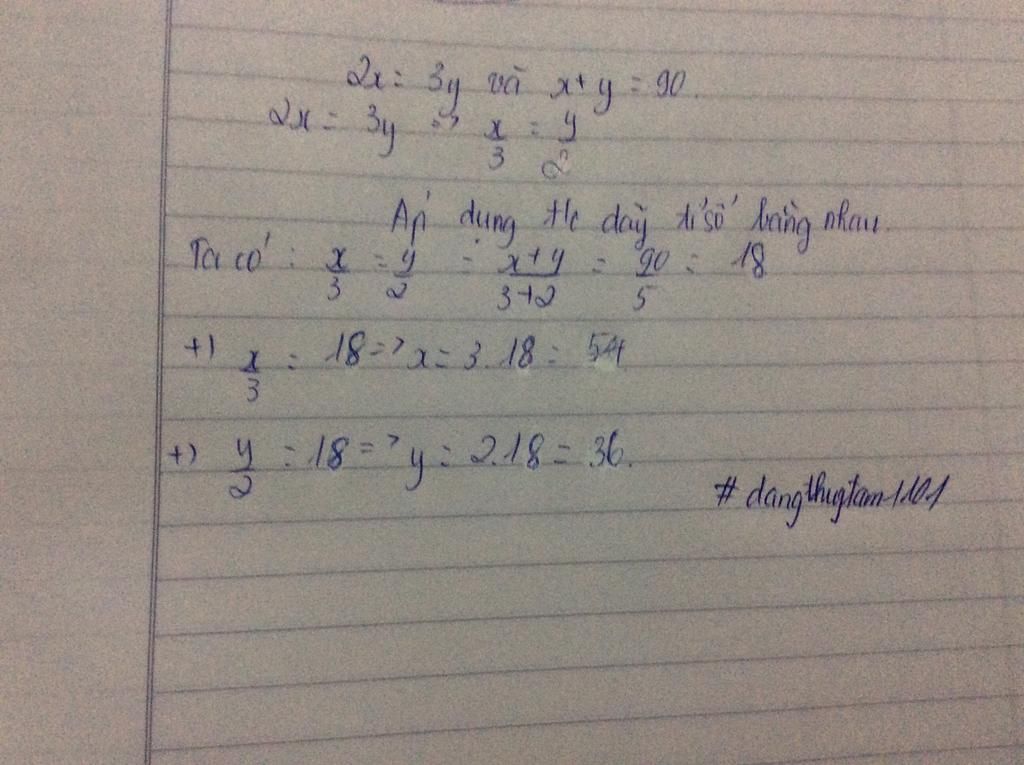 2x = 3y và x+y = 90.
2x = 3y => x/3 = y/2
Áp dụng t/c dãy tỉ số bằng nhau.
Ta có : x/3 = y/2 = x+y/3+2 = 90/5 = 18
+) x/3 = 18 => x = 3.18 = 54
+) y/2 = 18 => y = 2.18 = 36.
# dangthuytam1101